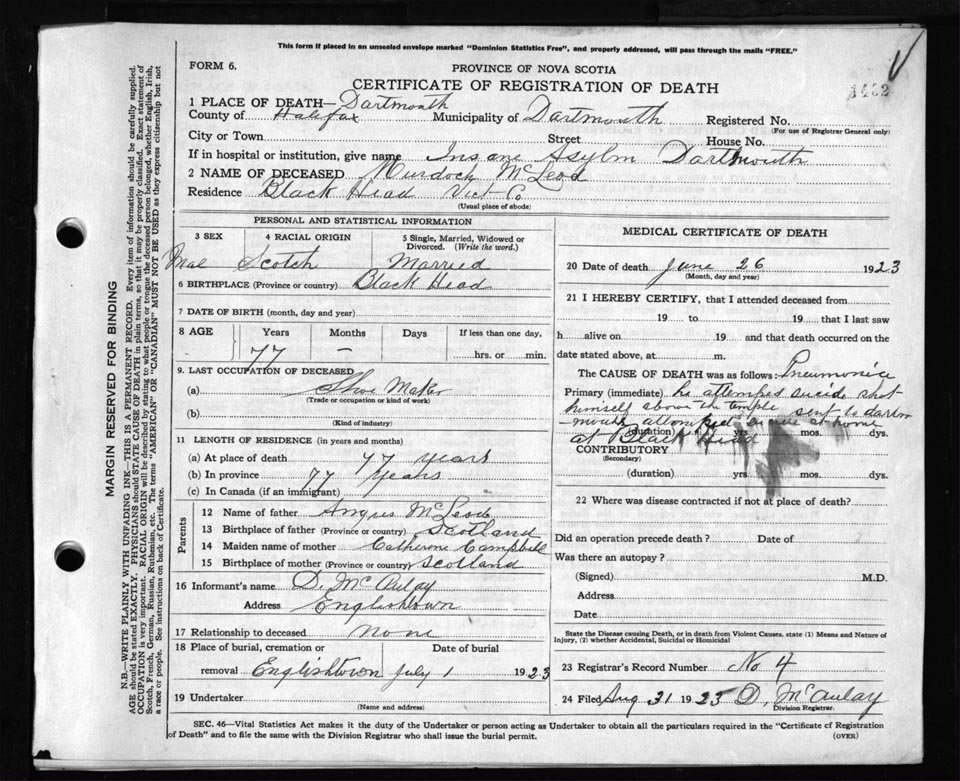 This form if placed in an unsealed envelope marked "Dominion Statistics Free", and properly addressed, will pass through the mails "FREE."
FORM 6.
PROVINCE OF NOVA SCOTIA
CERTIFICATE OF REGISTRATION OF DEATH
1482
1 PLACE OF DEATH— Dartmouth
County of Halifax Municipality of Dartmouth Registered No.
(For use of Registrar General only)
City or Town Street House No.
If in hospital or institution, give name Insane Asylm Dartmouth
2 NAME OF DECEASED Murdock McLeod
Residence Black Head Vict Co
(Usual place of abode)
PERSONAL AND STATISTICAL INFORMATION
3 SEX 4 RACIAL ORIGIN 5 Single, Married, Widowed or Divorced. (Write the word.)
Mal Scotch Married
6 BIRTHPLACE (Province or country) Black Head
7 DATE OF BIRTH (month, day and year)
8 AGE Years Months Days If less than one day,
77 – hrs. or min.
9. LAST OCCUPATION OF DECEASED
(a) Shoe Maker
(Trade or occupation or kind of work)
(b)
(Kind of industry)
11 LENGTH OF RESIDENCE (in years and months)
(a) At place of death 77 years
(b) In province 77 years
(c) In Canada (if an immigrant)
Parents
12 Name of father Angus McLeod
13 Birthplace of father (Province or country) Scotland
14 Maiden name of mother Catherine Campbell
15 Birthplace of mother (Province or country) Scotland
16 Informant's name D. McAulay
Address Englishtown
17 Relationship to deceased none
18 Place of burial, cremation or Date of burial
removal Englishtown July 1 1923
19 Undertaker
(Name and address)
MEDICAL CERTIFICATE OF DEATH
20 Date of death June 26 1923
(Month, day and year)
21 I HEREBY CERTIFY, that I attended deceased from
19 to 19 that I last saw
h alive on 19 and that death occurred on the
date stated above, at m.
The CAUSE OF DEATH was as follows: Pneumonia
Primary (immediate) he attemped suicide shot
himself above the temple sent to dartm
mouth attemped at home
(duration) yrs. mos. dys.
at Black Head
CONTRIBUTORY
(Secondary)
(duration) yrs mos. dys.
22 Where was disease contracted if not at place of death?
Did an operation precede death? Date of
Was there an autopsy?
(Signed) M.D.
Address
Date
State the Disease causing Death, or in death from Violent Causes, state (1) Means and Nature of Injury, (2) whether Accidental, Suicidal or Homicidal
23 Registrar's Record Number No 4
24 Filed Aug 31 1923 D, McAulay
Division Registrar.
SEC. 46—Vital Statistics Act makes it the duty of the Undertaker or person acting as Undertaker to obtain all the particulars required in the "Certificate of Registration
of Death" and to file the same with the Division Registrar who shall issue the burial permit. (OVER)
MARGIN RESERVED FOR BINDING
N.B.—WRITE PLAINLY WITH UNFADING INK—THIS IS A PERMANENT RECORD. Every item of information should be carefully supplied.
AGE should be stated EXACTLY. PHYSICIANS should STATE CAUSE OF DEATH in plain terms, so that it may be properly classified. Exact statement of
OCCUPATION is very important. RACIAL ORIGIN will be described by stating to what people or tongue the deceased person belonged, whether English, Irish,
Scotch, French, German, Russian, Ruthenian, etc. The terms "AMERICAN" or "CANADIAN" MUST NOT BE USED as they express citizenship but not
a race or people. See instructions on back of Certificate.